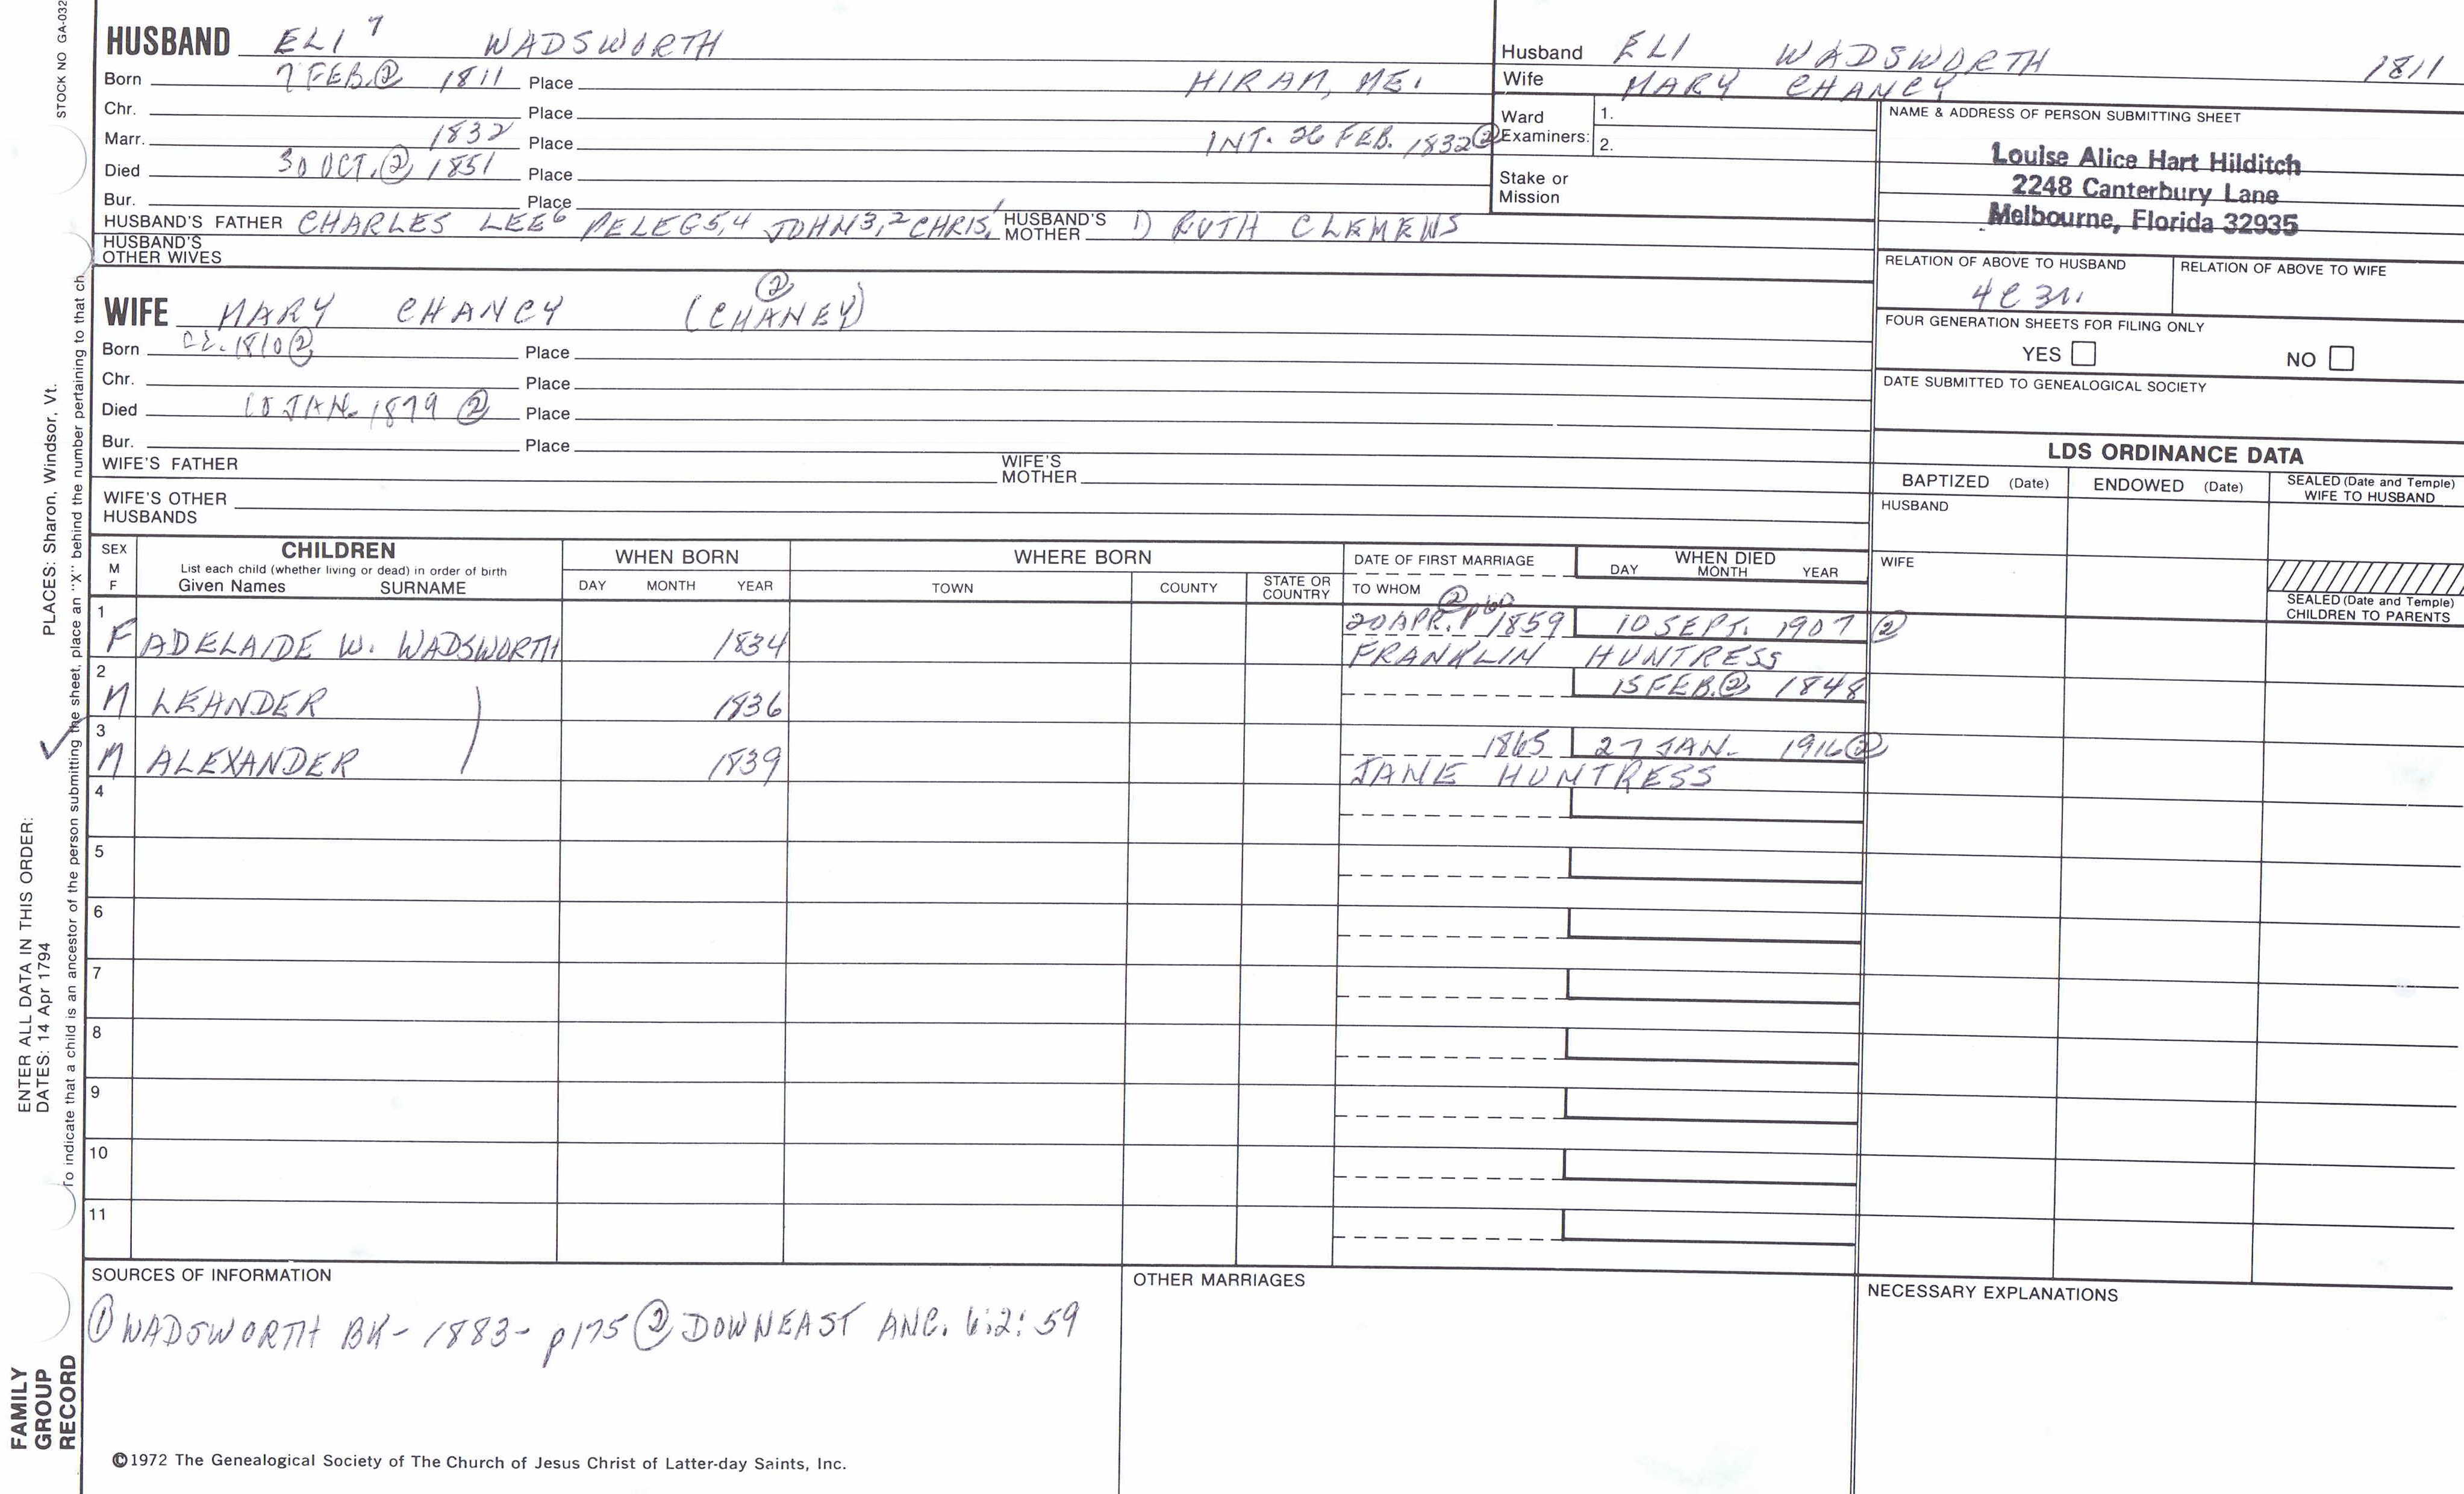 STOCK NO GA-032
HUSBAND ELI 7 WADSWORTH
Born 7 FEB. ② 1811 Place HIRAM, ME.
Chr. Place
Marr. 1832 Place INT. 26 FEB. 1832 ②
Died 30 OCT. ② 1851 Place
Bur. Place
HUSBAND'S FATHER CHARLES LEE 6 PELEG 5,4 JOHN 3,2 CHRIS. 1 HUSBAND'S MOTHER 1) RUTH CLEMEWS
HUSBAND'S OTHER WIVES
Husband ELI WADSWORTH 1811
Wife MARY CHANCY
Ward Examiners: 1.
2.
Stake or Mission
NAME & ADDRESS OF PERSON SUBMITTING SHEET
Louise Alice Hart Hilditch
2248 Canterbury Lane
Melbourne, Florida 32935
RELATION OF ABOVE TO HUSBAND
RELATION OF ABOVE TO WIFE
FOUR GENERATION SHEETS FOR FILING ONLY
YES NO
DATE SUBMITTED TO GENEALOGICAL SOCIETY
WIFE MARY CHANCY (CHANEY) ②
Born 1810 ② Place
Chr. Place
Died 10 JAN. 1879 ② Place
Bur. Place
WIFE'S FATHER WIFE'S MOTHER
WIFE'S OTHER HUSBANDS
LDS ORDINANCE DATA
BAPTIZED (Date) ENDOWED (Date) SEALED (Date and Temple) WIFE TO HUSBAND
HUSBAND
WIFE
SEALED (Date and Temple) CHILDREN TO PARENTS
SEX M F
CHILDREN
List each child (whether living or dead) in order of birth
Given Names SURNAME
WHEN BORN
DAY MONTH YEAR
WHERE BORN
TOWN COUNTY STATE OR COUNTRY
DATE OF FIRST MARRIAGE
TO WHOM
WHEN DIED
DAY MONTH YEAR
1 F ADELAIDE W. WADSWORTH 1834 20 APR. ② 1859 10 SEPT. 1907 ②
FRANKLIN HUNTRESS
2 M LEANDER 1836 15 FEB. ② 1848
3 M ALEXANDER 1839 1865 27 JAN. 1916 ②
JANE HUNTRESS
4
5
6
7
8
9
10
11
SOURCES OF INFORMATION
① WADSWORTH BK - 1883 - p175 ② DOWNEAST ANC. 6:2:59
OTHER MARRIAGES
NECESSARY EXPLANATIONS
©1972 The Genealogical Society of The Church of Jesus Christ of Latter-day Saints, Inc.
FAMILY GROUP RECORD
ENTER ALL DATA IN THIS ORDER:
DATES: 14 Apr 1794
PLACES: Sharon, Windsor, Vt.
To indicate that a child is an ancestor of the person submitting the sheet, place an "X" behind the number pertaining to that ch